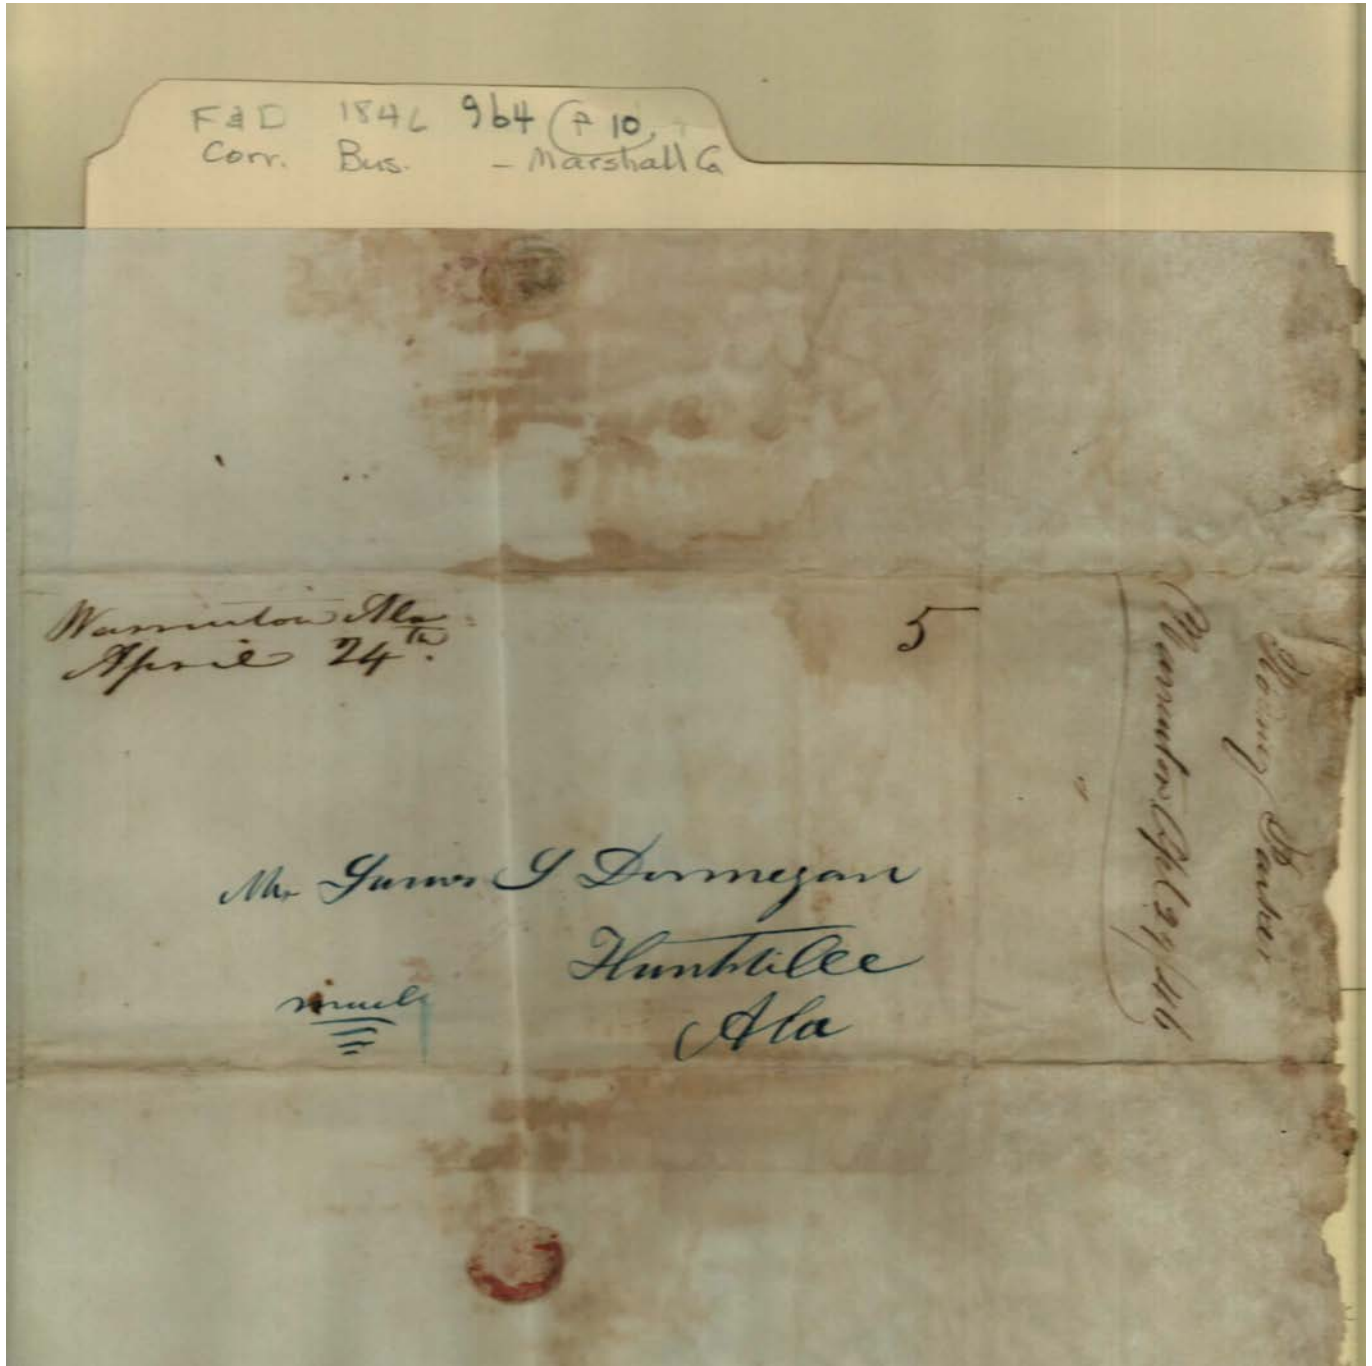 F & D 1846 964 P 10
Corr. Bus. - Marshall Co
Warrenton Ala
April 24th.
5
Mr James J Donnegan
Huntsville
Ala
Warrenton Apl 24/46